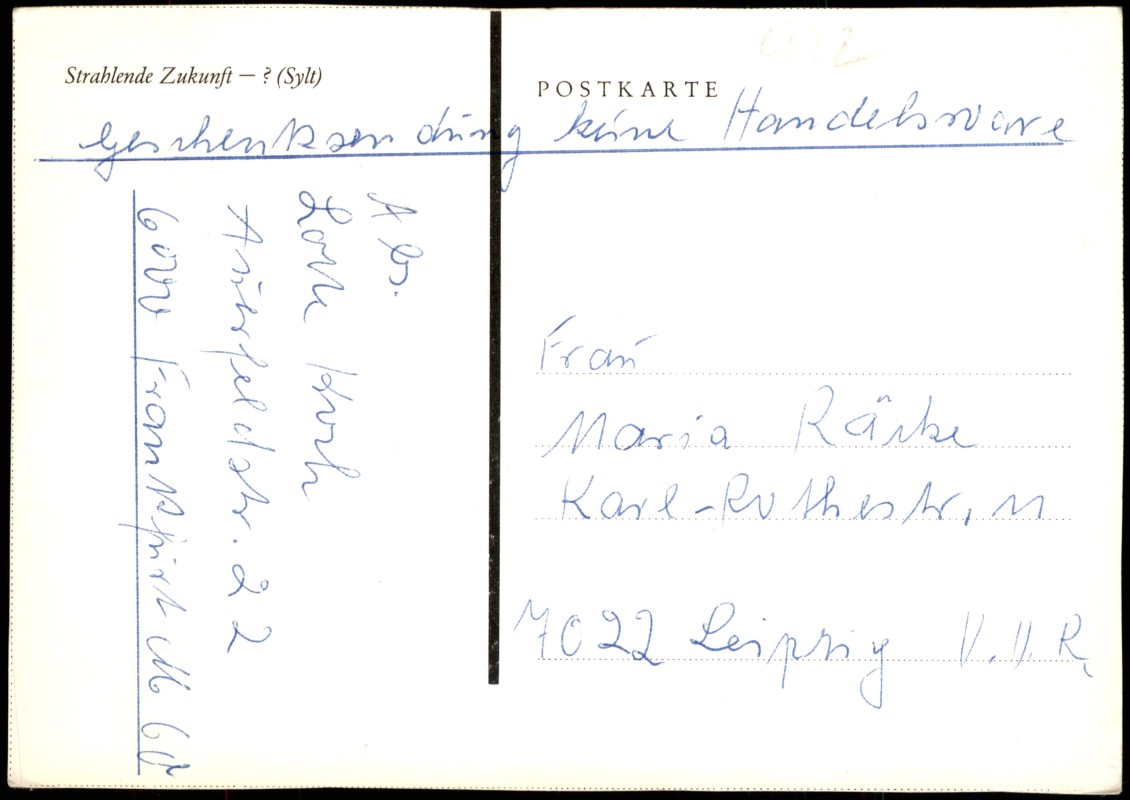 Strahlende Zukunft — ? (Sylt)
POSTKARTE
Geschenksendung keine Handelsware
Abs.
Lore Koch
22
6000 Frankfurt M 60
Frau
Maria
Karl-Rothestr. 11
7022 Leipzig